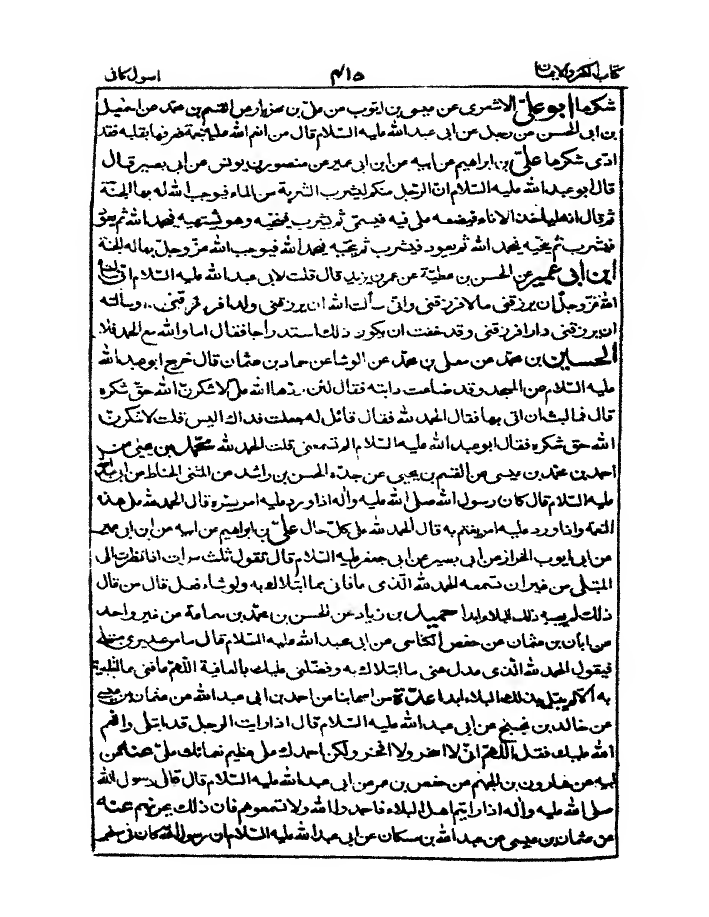 كتاب الكفر والايمان ٤١٥ اصول كافى
شكرها ابو علىّ الاشعرى عن عيسى بن ايوب عن علىّ بن مهزيار عن القسم بن محمّد عن اسمعيل
بن ابى الحسن عن رجل عن ابى عبد الله عليه السّلام قال من انعم الله عليه بنعمة فعرفها بقلبه فقد
ادّى شكرها علىّ بن ابراهيم عن ابيه عن ابن ابى عمير عن منصور بن يونس عن ابى بصير قال
قال ابو عبد الله عليه السّلام انّ الرّجل منكم ليشرب الشّربة من الماء فيوجب الله له بها الجنّة
ثم قال انه لياخذ الاناء فيضعه على فيه فيسمّى ثمّ يشرب فينحّيه وهو يشتهيه فيحمد الله ثم يعود
فيشرب ثم ينحّيه فيحمد الله ثم يعود فيشرب ثم ينحّيه فيحمد الله فيوجب الله عزّ وجلّ بها له الجنّة
ابن ابى عمير عن الحسن بن عطيّة عن عمر بن يزيد قال قلت لابى عبد الله عليه السّلام انّى سالت
الله عزّ وجلّ ان يرزقنى مالا فرزقنى وانّى سألت الله ان يرزقنى ولدا فرزقنى وسالته
ان يرزقنى دارا فرزقنى وقد خفت ان يكون ذلك استدراجا فقال اما والله مع الحمد فلا
الحسين بن محمّد عن معلى بن محمّد عن الوشا عن حماد بن عثمان قال خرج ابو عبد الله
عليه السّلام من المسجد وقد ضاعت دابته فقال لئن ردّها الله علىّ لاشكرنّ الله حقّ شكره
قال فما لبث ان اتى بها فقال الحمد لله فقال قائل له جعلت فداك اليس قلت لاشكرنّ
الله حق شكره فقال ابو عبد الله عليه السّلام الم تسمعنى قلت الحمد لله محمّد بن يحيى عن
احمد بن محمّد بن عيسى عن القسم بن يحيى عن جدّه الحسن بن راشد عن المثنى الحنّاط عن ابى عبد الله
عليه السّلام قال كان رسول الله صلى الله عليه واله اذا ورد عليه امر يسرّه قال الحمد لله على هذه
النّعمة واذا ورد عليه امر يغتم به قال الحمد لله على كلّ حال علىّ بن ابراهيم عن ابيه عن ابن ابى عمير
عن ابى ايوب الخزاز عن ابى بصير عن ابى جعفر عليه السّلام قال تقول ثلث مرات اذا نظرت الى
المبتلى من غير ان تسمعه الحمد لله الّذى عافانى مما ابتلاك به ولو شاء فعل قال من قال
ذلك لم يصبه ذلك البلاء ابدا حميد بن زياد عن الحسن بن محمّد بن سماعة عن غير واحد
عن ابان بن عثمان عن حفص الكناسى عن ابى عبد الله عليه السّلام قال ما من عبد يرى مبتلى
فيقول الحمد لله الّذى عدل عنى ما ابتلاك به وفضّلنى عليك بالعافية اللّهمّ عافنى مما ابتليته
به الّا لم يبتل بذلك البلاء ابدا عدّة من اصحابنا عن احمد بن ابى عبد الله عن عثمان بن عيسى
عن خالد بن نجيح عن ابى عبد الله عليه السّلام قال اذا رايت الرجل قد ابتلى وانعم
الله عليك فقل اللّهمّ انّى لا اسخر ولا افخر ولكن احمدك على عظيم نعمائك علىّ عنه عن
ابيه عن هارون بن الجهم عن حفص بن عمر عن ابى عبد الله عليه السّلام قال قال رسول الله
صلى الله عليه واله اذا رايتم اهل البلاء فاحمدوا الله ولا تسمعوهم فان ذلك يحزنهم عنه
عن عثمان بن عيسى عن عبد الله بن مسكان عن ابى عبد الله عليه السّلام ان رسول الله كان فى سفر